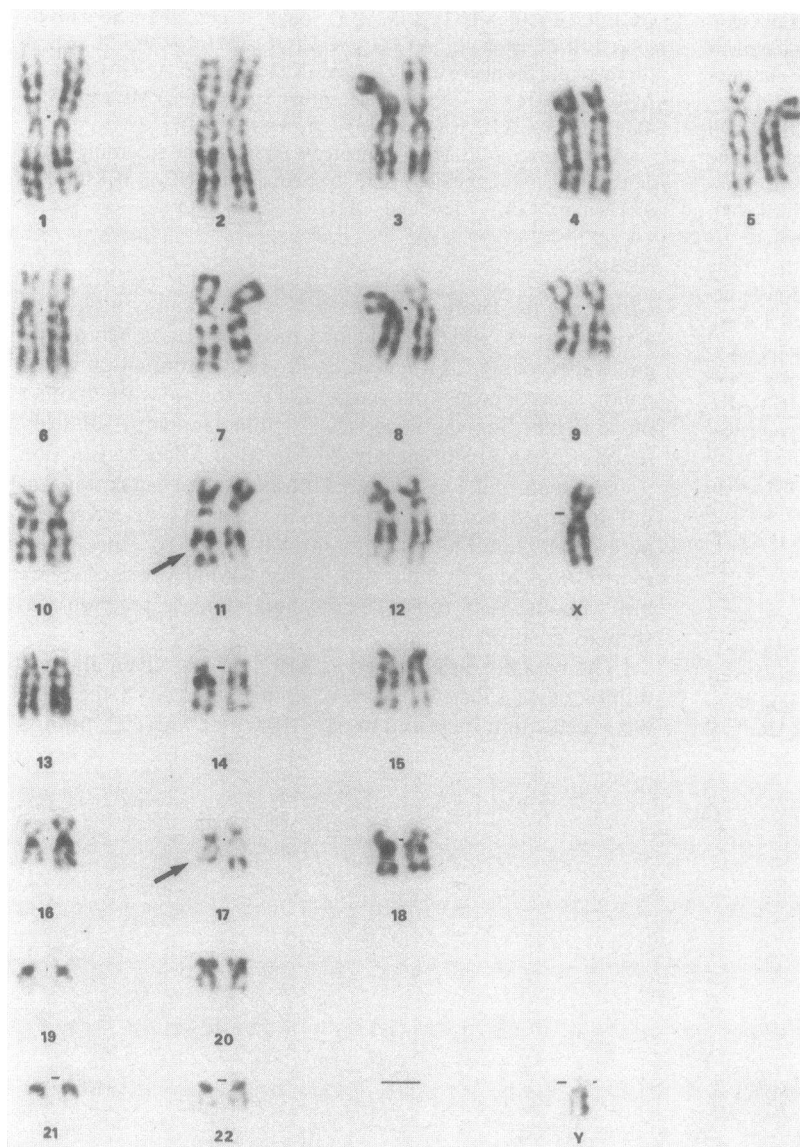 1 2 3 4 5
6 7 8 9
10 11 12 X
13 14 15
16 17 18
19 20
21 22 Y